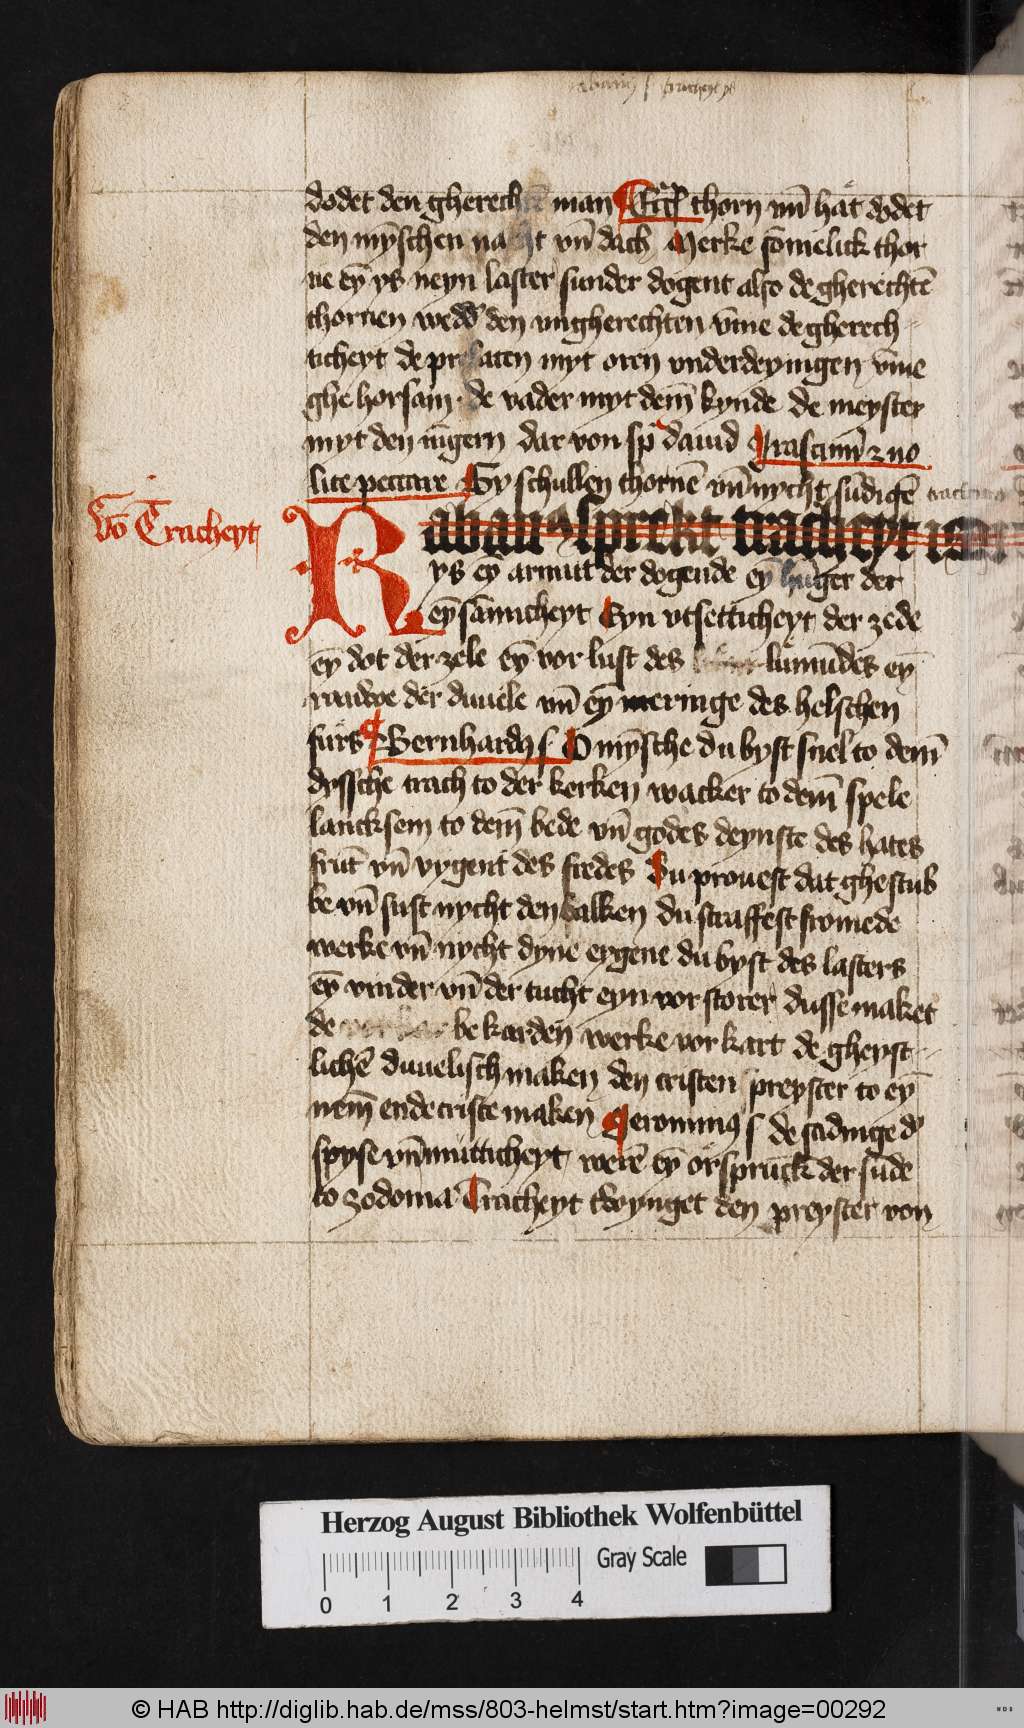 dodet den gherech man Eccͥ thorn vn̄ hat dodet
den mȳschen nacht vn̄ dach Merke somelick thor
ne eȳ ys neyn laster sunder dogent also de gherechtē
thornen wedď den vngherechten vm̄e de gherech
ticheyt de prelaten myt oren vnderdeynigen vm̄e
ghe horsam · de vader myt dem̄ kynde de meyster
myt den iūgern dar von sp̄ dauid Irascimī ⁊ no
lite peccare Gy schullen thornē vn̄ nycht sūdigē
Vō Tracheyt
Raban⁹ sprekt tracheyt is
ys eȳ armut der dogende eȳ hūger der
eȳsāmicheyt Eyn vtsetticheyt der zede
eȳ dot der zele eȳ vor lust des lūmūdes eȳ
rauwe der duuele vn̄ eȳ meringe des helschen
furs Bernhard⁹ s O mȳsche du byst snel to dem̄
dyssche trach to der kerken wacker to dem̄ spele
lancksem to dem̄ bede vn̄ godes deynste des hates
frūt vn̄ vygent des fredes Du prouest dat ghestub
be vn̄ sust nycht den balken du straffest fromede
werke vn̄ nycht dyne eygene du byst des lasters
eȳ vinder vn̄ der tucht eyn vor storer dusse maket
de be karden werke vor kart de gheyst
lichē duuelisch maken den cristen preyster to eȳ
nem̄ endecriste maken Ieronim⁹ s de sadinge ď
spyse vn̄ mutticheyt werē eȳ orsprūck der sūde
to zodoma Tracheyt twynget den preyster von
Herzog August Bibliothek Wolfenbüttel
Gray Scale
0 1 2 3 4
© HAB http://diglib.hab.de/mss/803-helmst/start.htm?image=00292